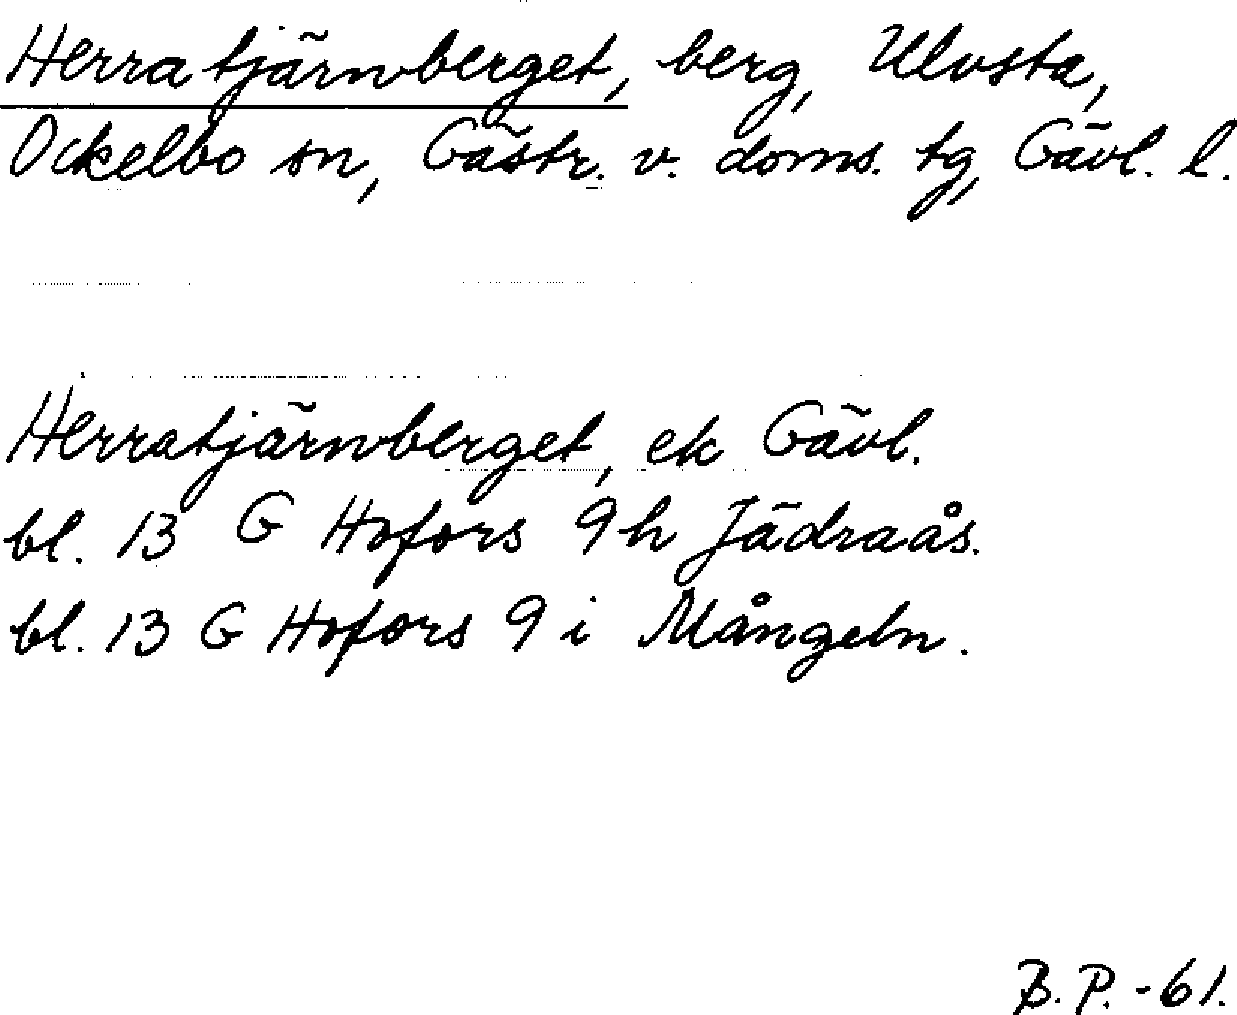 Herratjärnberget, berg, Ulvsta,
Ockelbo sn, Gästr. v. doms. tg, Gävl. l.
Herratjärnberget, ek Gävl.
bl. 13 G Hofors 9h Jädraås.
bl. 13 G Hofors 9 i Mångeln.
B. P. -61.